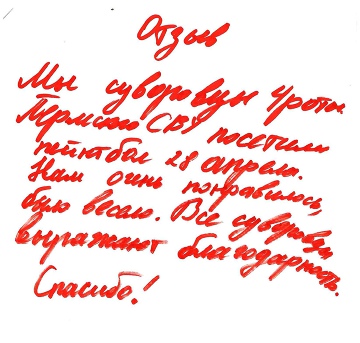 Отзыв
Мы суворовцы 4 роты
Пермского СВУ посетили
пейнтбол 28 апреля.
Нам очень понравилось,
было весело. Все суворовцы
выражают благодарность.
Спасибо!